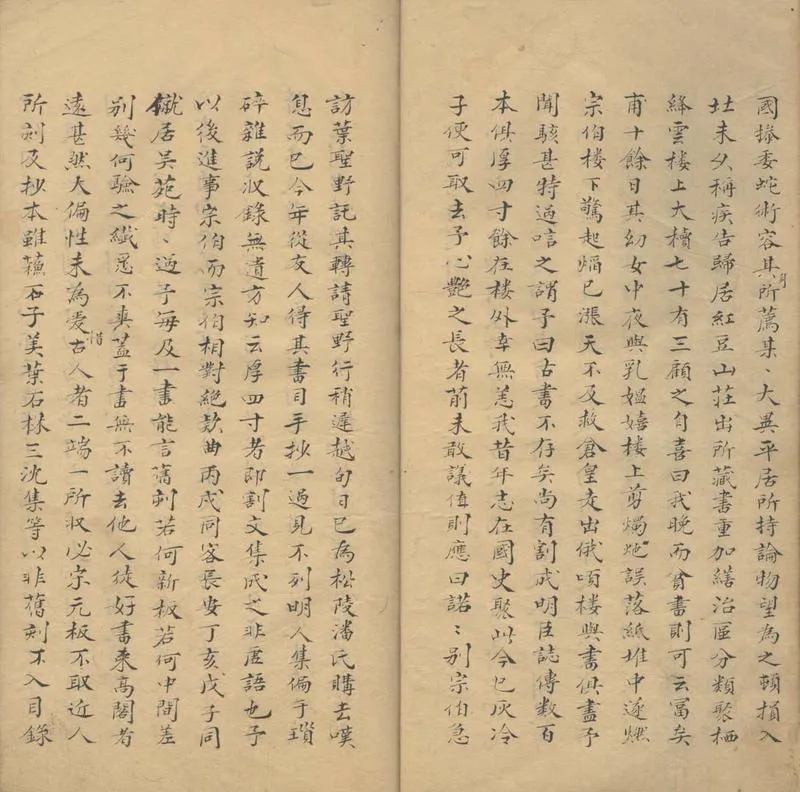 國掾委蛇術容其所薦某、大異平居所持論物望為之頓損入
月
北未夕稱疾告歸居紅豆山莊出所藏書重加繕治區分類聚栖
絳雲樓上大櫝七十有三顧之自喜曰我晚而貧書則可云富矣
甫十餘日其幼女中夜與乳媼嬉樓上剪燭灺誤落紙堆中遂燃
宗伯樓下驚起焰已漲天不及救倉皇走出俄頃樓與書俱盡予
聞駭甚特過唁之謂予曰古書不存矣尚有割成明臣誌傳數百
本俱厚四寸餘在樓外幸無恙我昔年志在國史聚此今已灰冷
子便可取去予心艷之長者前未敢議值則應曰諾〻別宗伯急
訪葉聖野託其轉請聖野行稍遲越旬日已為松陵潘氏購去嘆
息而已今年從友人得其書目手抄一過見不列明人集偏于瑣
碎雜說收錄無遺方知云厚四寸者即割文集成之非虛語也予
以後進事宗伯而宗伯相對絕欵曲丙戌同客長安丁亥戊子同
僦居吳苑時〻過予每及一書能言舊刻若何新板若何中間差
别幾何驗之纖悉不爽蓋于書無不讀去他人徒好書束高閣者
遠甚然大偏性未為愛古人者二端一所收必宗元板不取近人
惜
所刻及抄本雖蘓子美葉石林三沈集等以非舊刻不入目錄